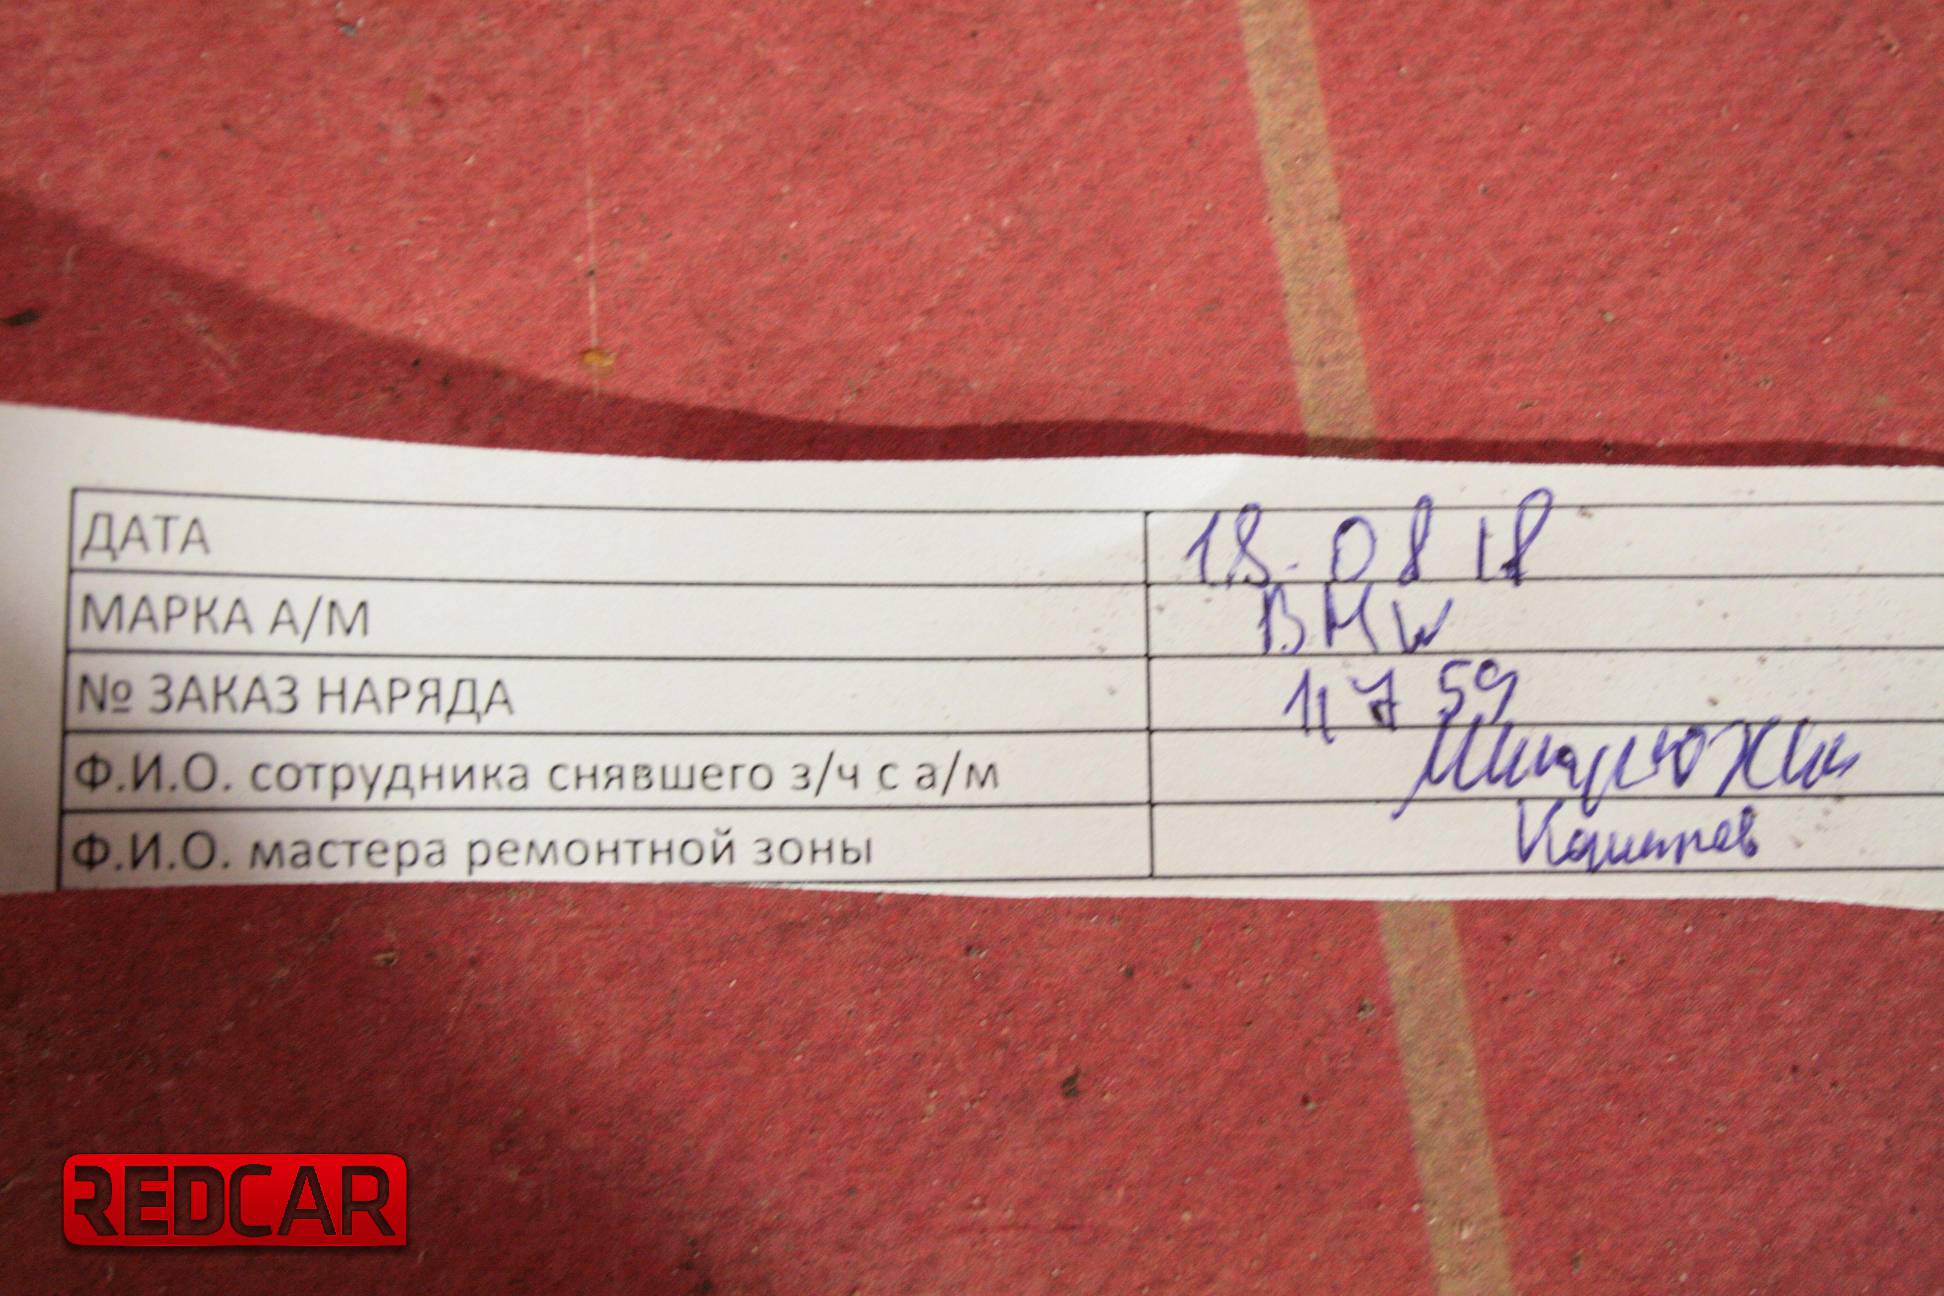 ДАТА 18.08 18
МАРКА А/М BMW
№ ЗАКАЗ НАРЯДА 11759
Ф.И.О. сотрудника снявшего з/ч с а/м
Ф.И.О. мастера ремонтной зоны
REDCAR